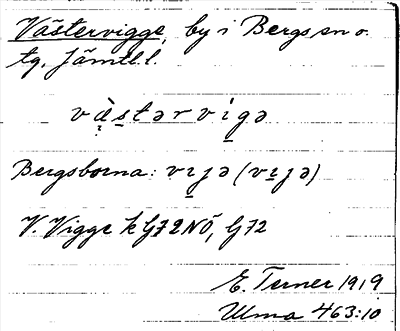 Västervigge, by i Bergs sn o.
tg, Jämtl. l.
vä̀stərvigə
Bergsborna: vɪȷə (vɪȷə)
V. Vigge k G72NÖ, G72
E. Terner 1919
Ulma 463:10